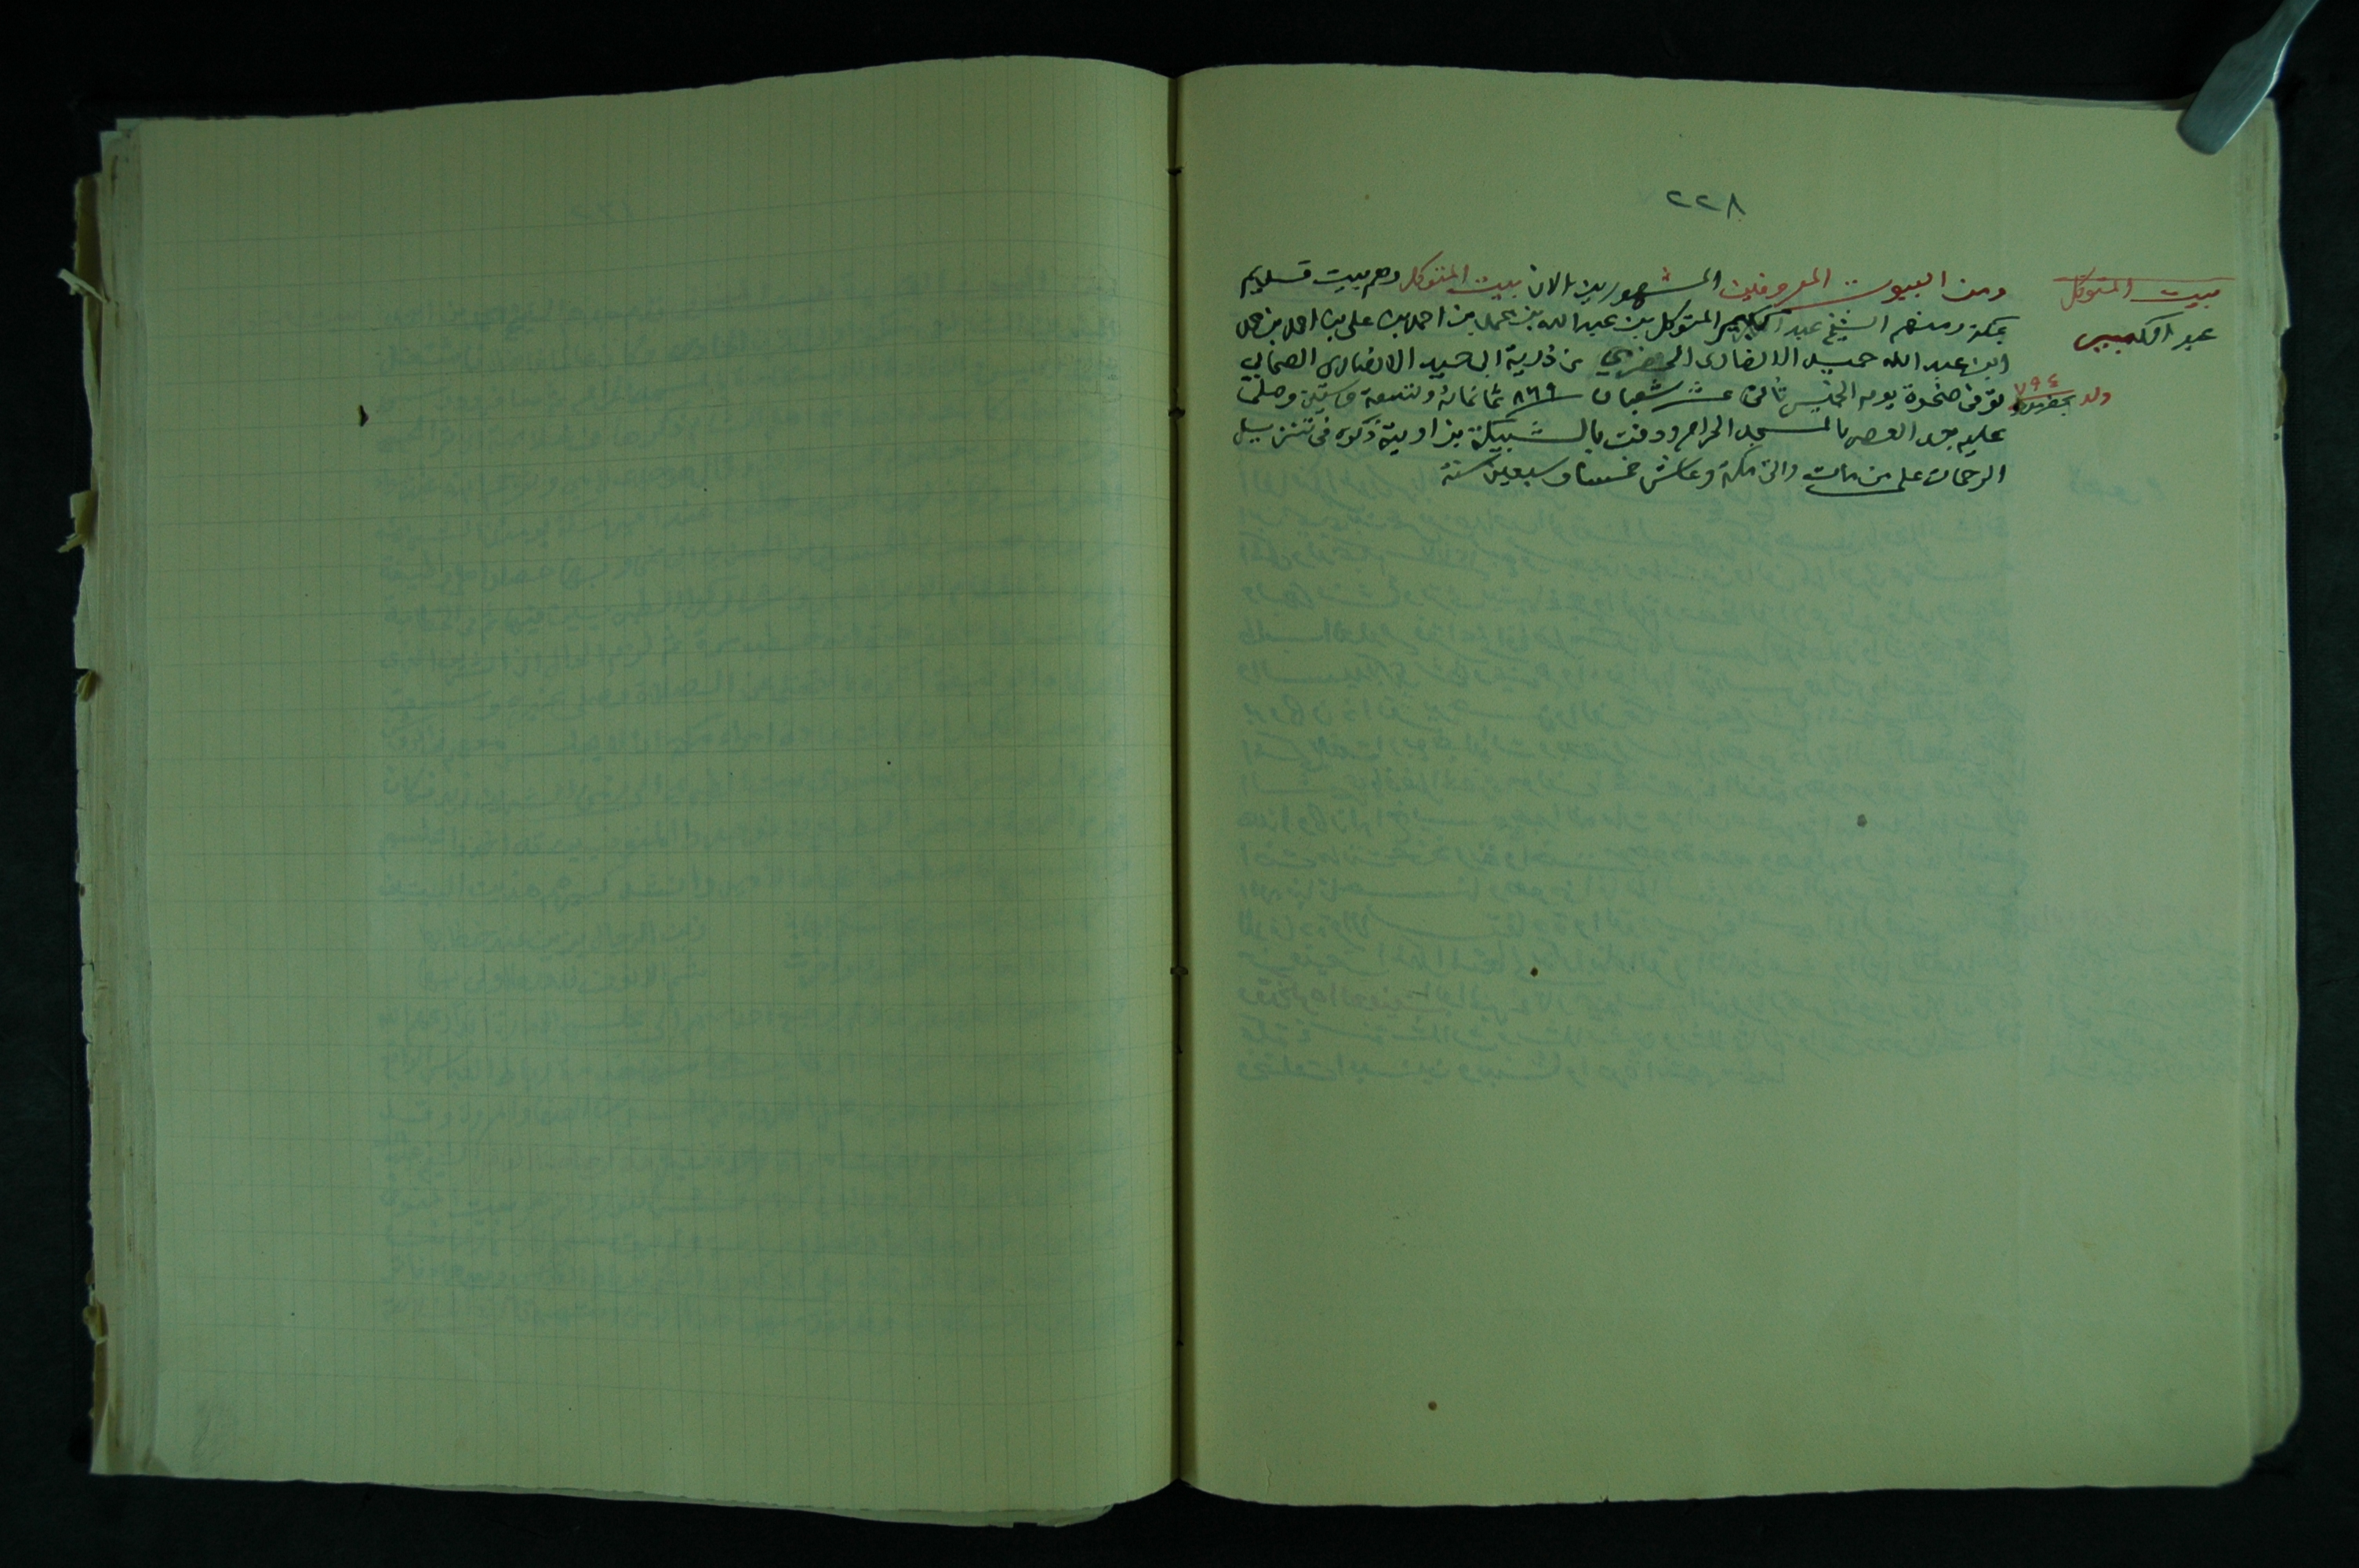 ٢٢٨
بيت المتوكل
عبد الكبير
ومن البيوت المعروفين المشهورين الان بيت المتوكل وهم بيت قديم
بمكة ومنهم الشيخ عبد الكبير المتوكل بن عبد الله بن محمد بن احمد بن على بن احمد بن محمد
ابن عبد الله حميد الانصارى الحضرمي من ذرية ابى حميد الانصارى الصحابي
ولد بحضرموت ٧٩٤
توفى ضحوة يوم الخميس ثانى عشر شعبان ٨٦٩ ثمانمائة وتسعة وستين وصلى
عليه بعد العصر بالمسجد الحرام ودفن بالشبيكة بزاوية ذكره فى تنزيل
الرحمات على من مات والى مكة وعاش خمسا وسبعين سنة